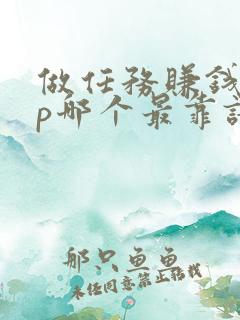 做任务賺钱
p哪个最靠
那只鱼鱼
未经同意禁止转载